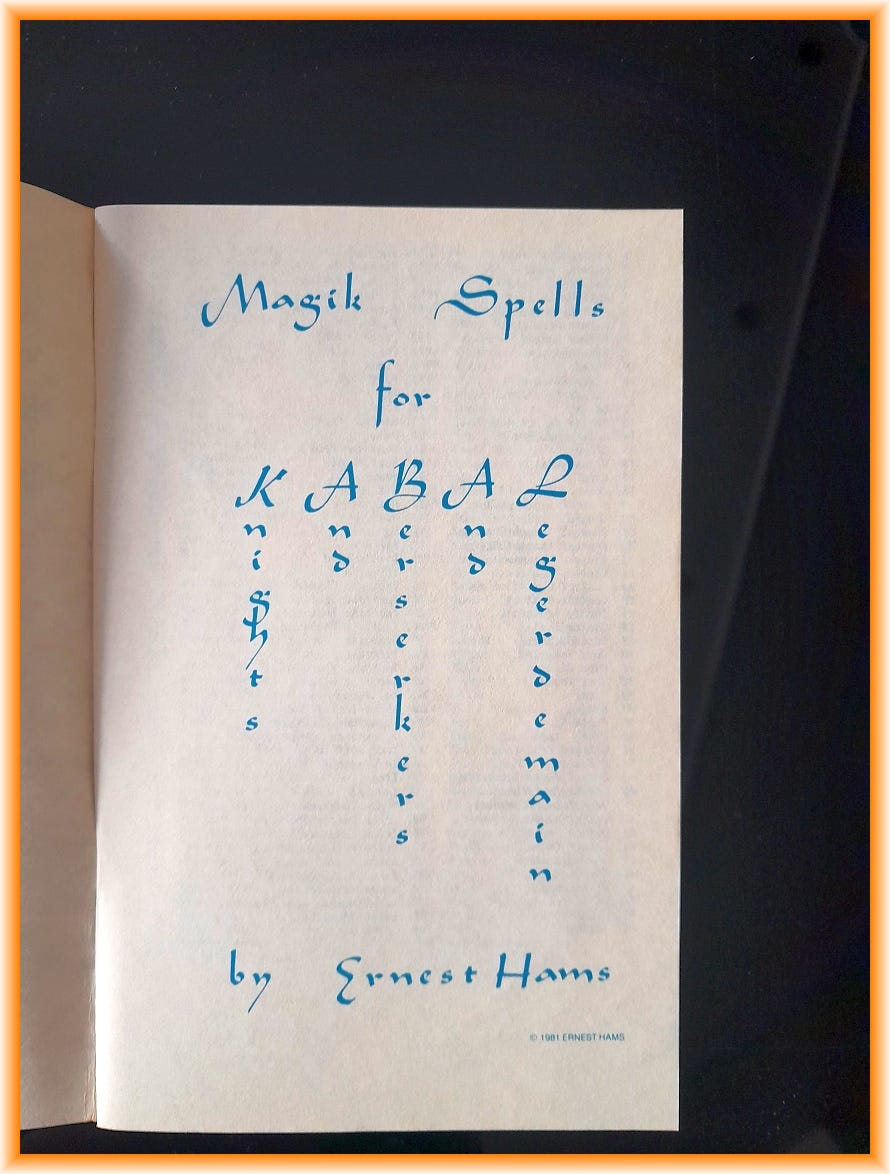 Magik Spells
for
Knights And Berserkers And Legerdemain
by Ernest Hams
© 1981 ERNEST HAMS